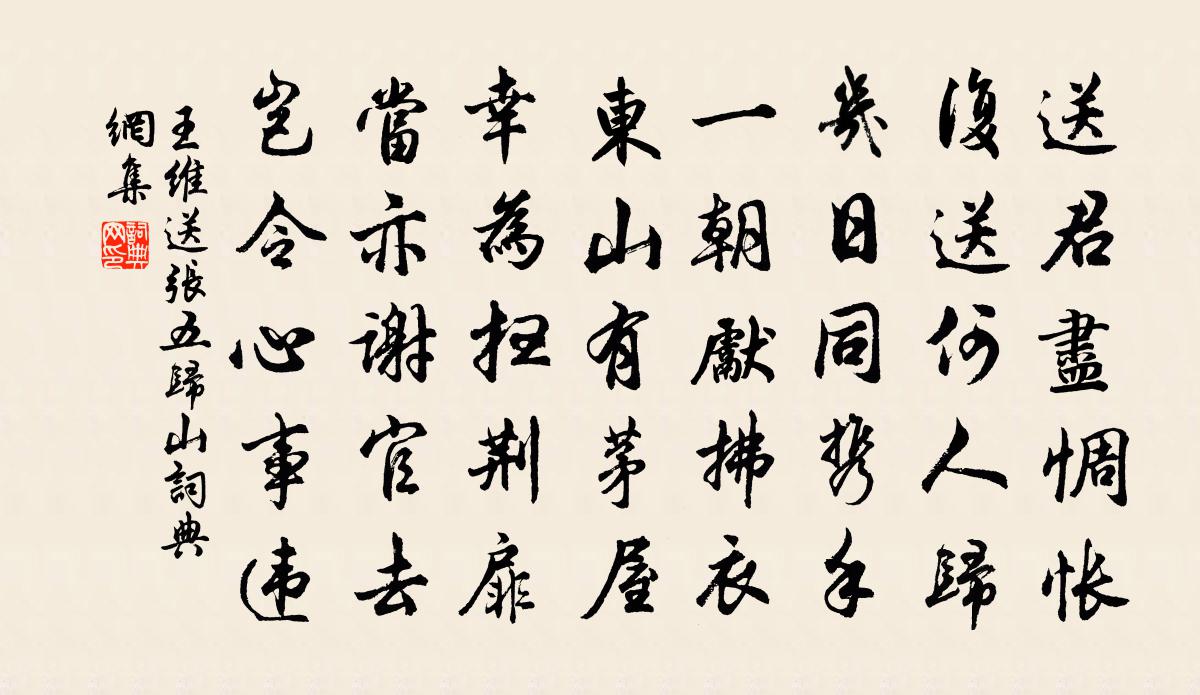 送君盡惆悵
復送何人歸
幾日同携手
一朝獻拂衣
東山有茅屋
幸為扫荆扉
當亦謝官去
豈令心事違
王維送張五歸山詞典
網集
詞典
网印